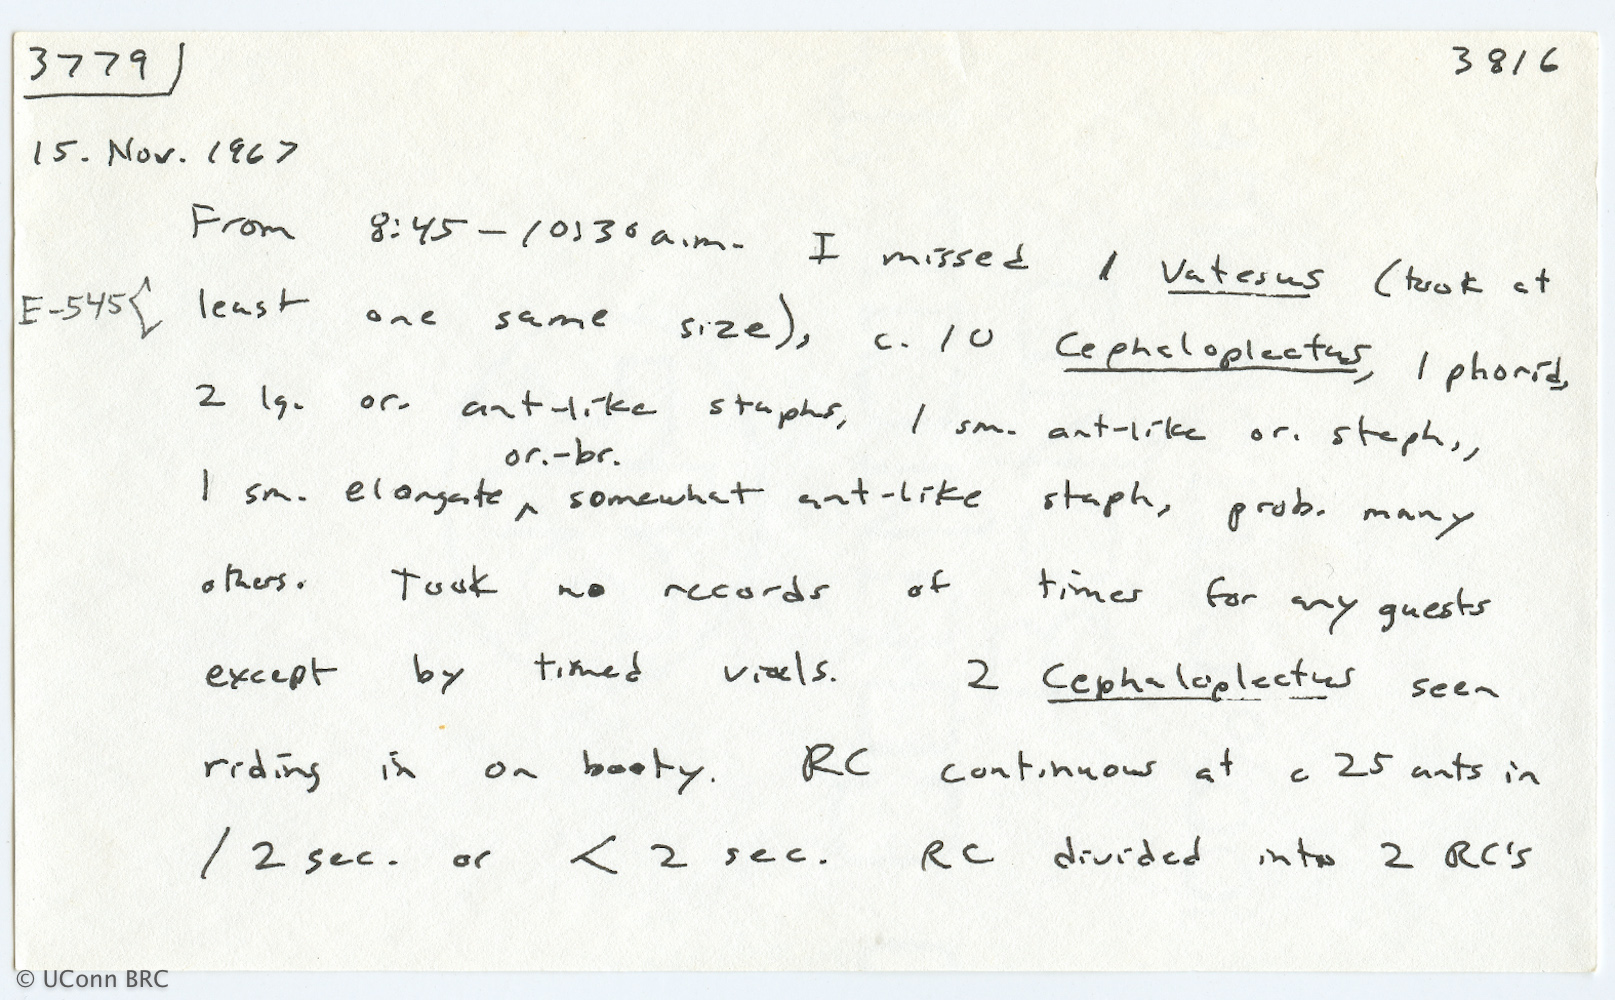 3779 3816
15. Nov. 1967
From 8:45 – 10:30 a.m. I missed 1 Vatesus (took at
E-545{ least one same size), c. 10 Cephaloplectus, 1 phorid,
2 lg. or. ant-like staphs, 1 sm. ant-like or. staph.,
or.-br.
1 sm. elongate ^ somewhat ant-like staph, prob. many
others. Took no records of times for any guests
except by timed vials. 2 Cephaloplectus seen
riding in on booty. RC continuous at c 25 ants in
/ 2 sec. or < 2 sec. RC divided into 2 RC's
© UConn BRC